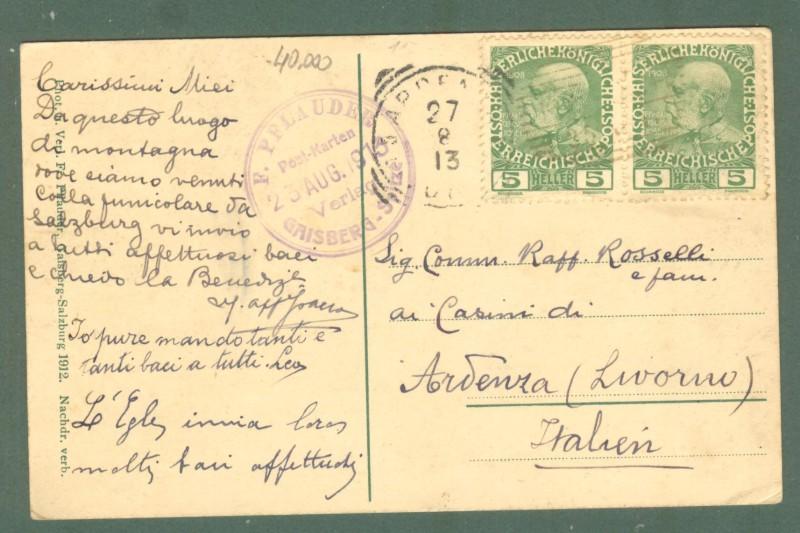 40.000
Carissimi Miei
Da questo luogo
di montagna
dove siamo venuti
colla funicolare da
Salzburg vi invio
a tutti affettuosi baci
e chiedo la Benediz.
Io pure mando tanti e
tanti baci a tutti. Leo
L'Egle invia loro
molti baci affettuosi
Phot. u. Verl. Fr. Pflauder, Gaisberg-Salzburg 1912. Nachdr. verb.
F. PFLAUDER
Post-Karten
23 AUG. 1913
Verlag
GAISBERG-Spitze
ARDENZA
27
8
13
KAISERLICHE KÖNIGLICHE
ÖSTERREICHISCHE
1908
5 HELLER 5
KAISERLICHE KÖNIGLICHE
ÖSTERREICHISCHE
1908
5 HELLER 5
Sig. Comm. Raff. Rosselli
e fam.
ai Casini di
Ardenza (Livorno)
Italien